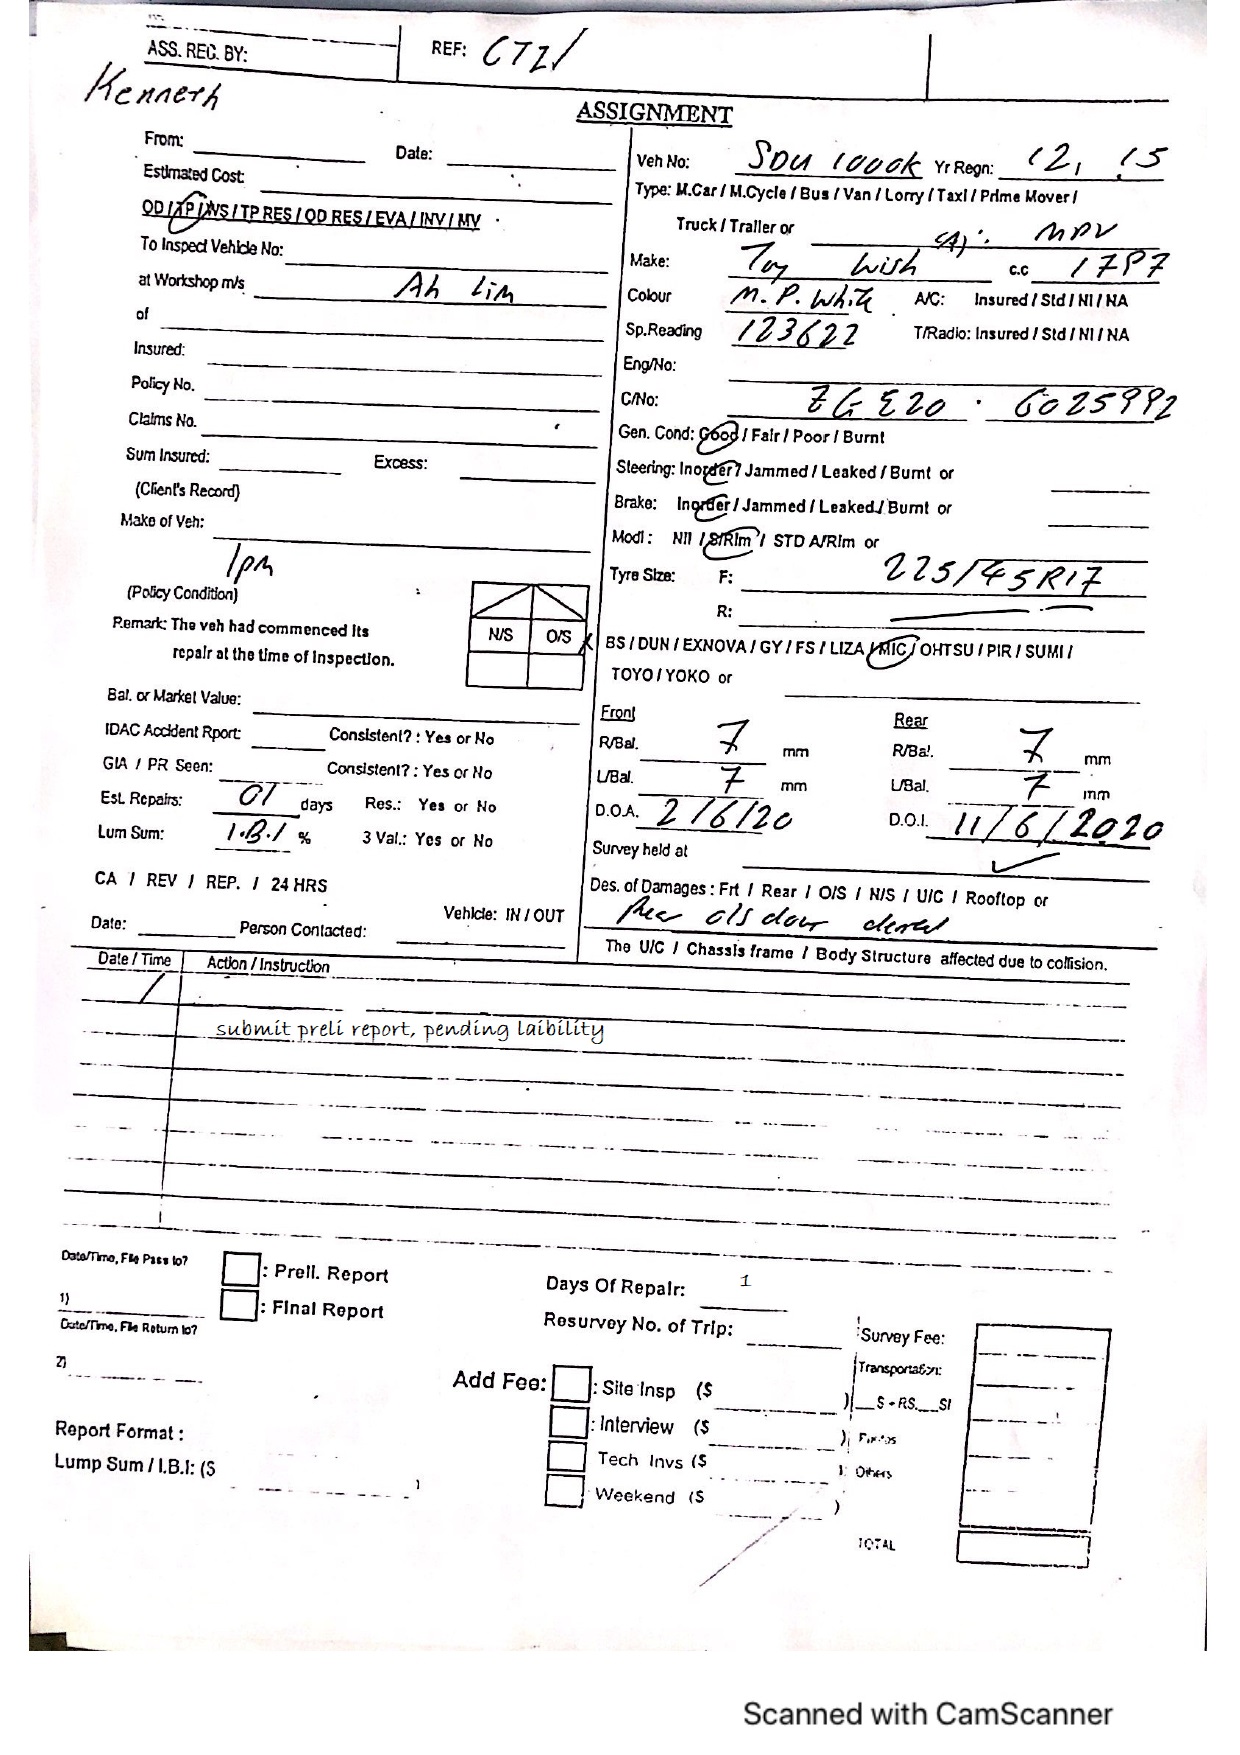 ASS. REC. BY:
REF: CTI/
Kenneth
ASSIGNMENT
From:
Date:
Estimated Cost:
OD / TP / WS / TP RES / OD RES / EVA / INV / MV
To Inspect Vehicle No:
at Workshop m/s Ah Lim
of
Insured:
Policy No.
Claims No.
Sum Insured: Excess:
(Client's Record)
Make of Veh:
1pm
(Policy Condition)
Remark: The veh had commenced its
repair at the time of Inspection.
N/S O/S X
Bal. or Market Value:
IDAC Accident Rport: Consistent? : Yes or No
GIA / PR Seen: Consistent? : Yes or No
Est. Repairs: 01 days Res.: Yes or No
Lum Sum: 1.B.1 % 3 Val.: Yes or No
CA / REV / REP. / 24 HRS
Vehicle: IN / OUT
Date: Person Contacted:
Veh No: SDU 1000K Yr Regn: 12, 15
Type: M.Car / M.Cycle / Bus / Van / Lorry / Taxi / Prime Mover /
Truck / Trailer or (A) MPV
Make: Toy Wish c.c 1797
Colour M. P. White A/C: Insured / Std / NI / NA
Sp.Reading 123622 T/Radio: Insured / Std / NI / NA
Eng/No:
C/No: ZGE20 - 6025992
Gen. Cond: Good / Fair / Poor / Burnt
Steering: Inorder / Jammed / Leaked / Burnt or
Brake: Inorder / Jammed / Leaked / Burnt or
Modi: Nil / S/Rim / STD A/Rim or
Tyre Size: F: 225/45R17
R:
BS / DUN / EXNOVA / GY / FS / LIZA / MIC / OHTSU / PIR / SUMI /
TOYO / YOKO or
Front Rear
R/Bal. 7 mm R/Bal. 7 mm
L/Bal. 7 mm L/Bal. 7 mm
D.O.A. 2/6/20 D.O.I. 11/6/2020
Survey held at
Des. of Damages : Frt / Rear / O/S / N/S / U/C / Rooftop or
Rear o/s door dented
The U/C / Chassis frame / Body Structure affected due to collision.
Date / Time Action / Instruction
submit preli report, pending laibility
Date/Time, File Pass to?
: Preli. Report
1)
: Final Report
Date/Time, File Return to?
2)
Days Of Repair: 1
Resurvey No. of Trip:
Survey Fee:
Transportation:
Add Fee: : Site Insp ($ ) S + RS. SI
: Interview ($ )
Tech Invs ($ ) Others
Weekend ($ )
TOTAL
Report Format :
Lump Sum / I.B.I: ($ )
Scanned with CamScanner